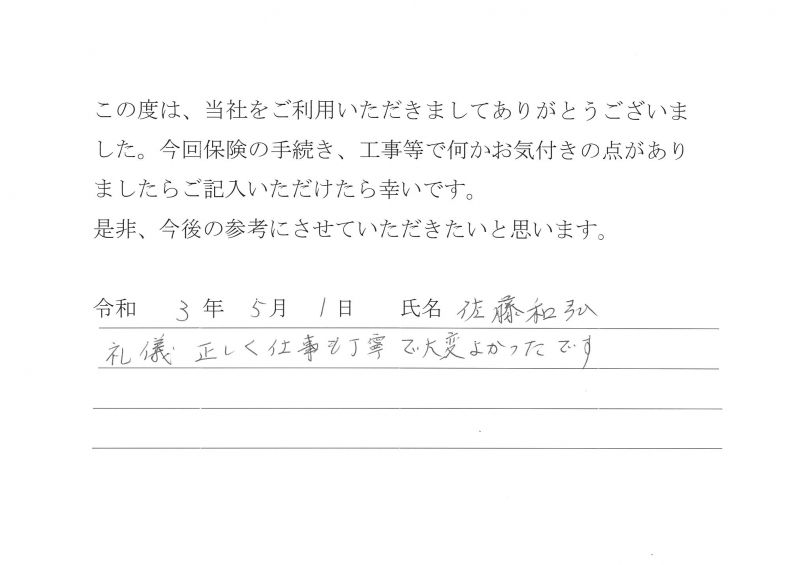 この度は、当社をご利用いただきましてありがとうございま
した。今回保険の手続き、工事等で何かお気付きの点があり
ましたらご記入いただけたら幸いです。
是非、今後の参考にさせていただきたいと思います。
令和 3 年 5 月 1 日 氏名 佐藤和弘
礼儀正しく仕事も丁寧で大変よかったです